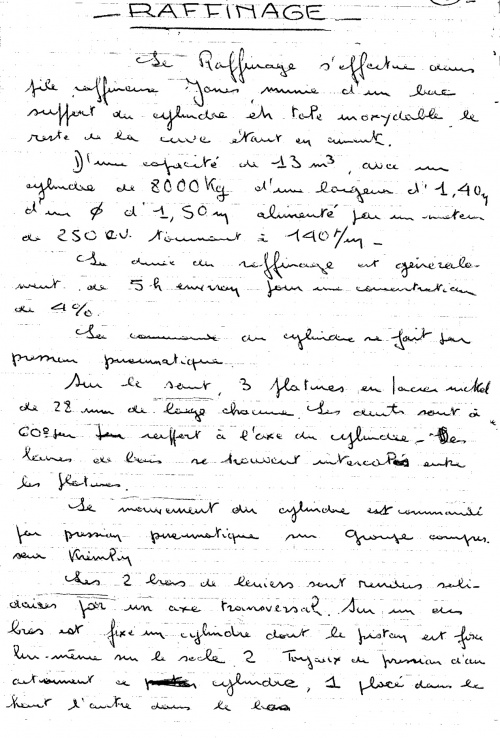 — RAFFINAGE —
Le Raffinage s'effectue dans
pile raffineuse Jones munie d'un bac
support du cylindre en tole inoxydable le
reste de la cuve étant en
D'une capacité de 13 m³, avec un
cylindre de 8000 Kg d'une largeur d'1,40m
d'un Ø d'1,50 m alimenté par un moteur
de 250 CV. tournant à 140 t/m –
La durée du raffinage est générale-
ment de 5 h environ pour une concentration
de 4%.
La commande du cylindre se fait par
pression pneumatique.
Sur le saut, 3 platines en acier nickel
de 28 mm de large chacune. Les dents sont à
60° par rapport à l'axe du cylindre – Des
lames de bois se trouvent intercalés entre
les platines.
Le mouvement du cylindre est commandé
par pression pneumatique un Groupe compres.
seur
Les 2 bras de leviers sont rendus soli-
daires par un axe transversal. Sur un des
bras est fixé un cylindre dont le piston est fixé
lui-même sur le socle. 2 Tuyaux de pression d'air
actionnent ce cylindre, 1 placé dans le
haut l'autre dans le bas